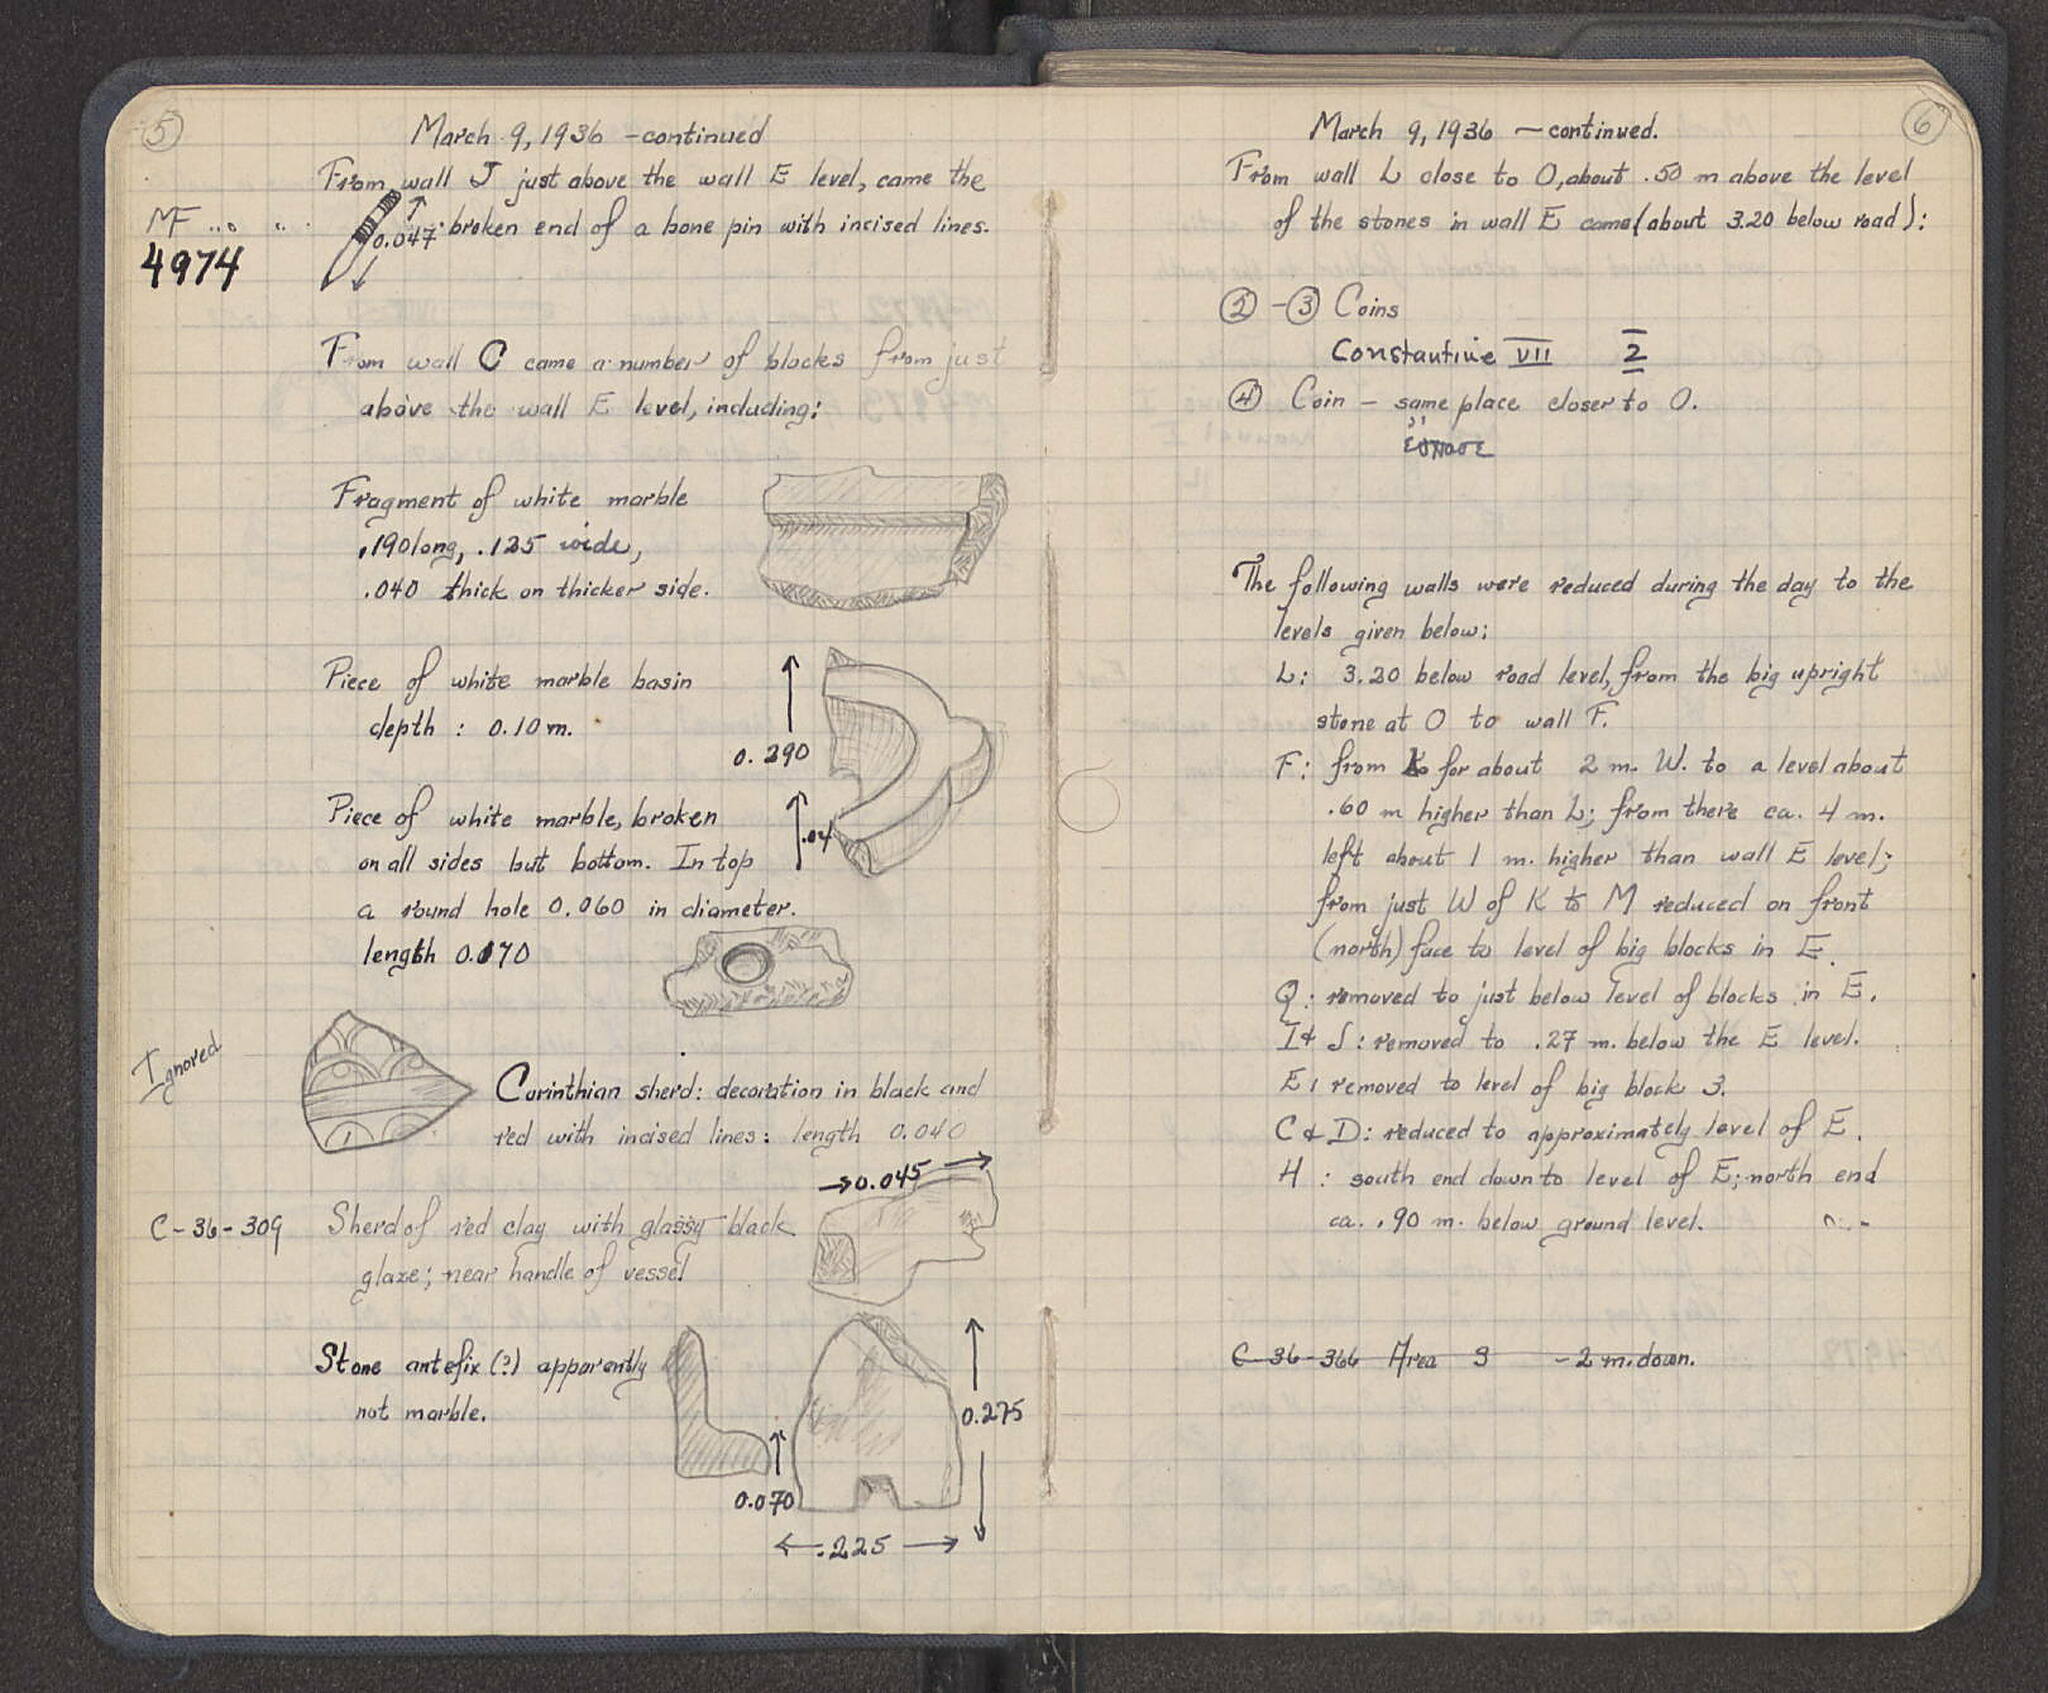 5
March 9, 1936 - continued
From wall J just above the wall E level, came the
MF
0.047 broken end of a bone pin with incised lines.
4974
From wall C came a number of blocks from just
above the wall E level, including:
Fragment of white marble
.190 long, .125 wide,
.040 thick on thicker side.
Piece of white marble basin
depth : 0.10 m.
0.290
Piece of white marble, broken
.04
on all sides but bottom. In top
a round hole 0.060 in diameter.
length 0.170
Ignored
Corinthian sherd: decoration in black and
red with incised lines: length 0.040
0.045
C-36-309 Sherd of red clay with glassy black
glaze; near handle of vessel
Stone antefix (?) apparently
not marble.
0.275
0.070
.225
6
March 9, 1936 — continued.
From wall L close to O, about .50 m above the level
of the stones in wall E came (about 3.20 below road):
② - ③ Coins
Constantine VII 2
④ Coin - same place closer to O.
The following walls were reduced during the day to the
levels given below:
L: 3.20 below road level, from the big upright
stone at O to wall F.
F: from K for about 2 m. W. to a level about
.60 m higher than L; from there ca. 4 m.
left about 1 m. higher than wall E level;
from just W of K to M reduced on front
(north) face to level of big blocks in E.
Q: removed to just below level of blocks in E.
I & J: removed to .27 m. below the E level.
E: removed to level of big block 3.
C & D: reduced to approximately level of E.
H: south end down to level of E; north end
ca. .90 m. below ground level.
C-36-366 Area S - 2 m. down.